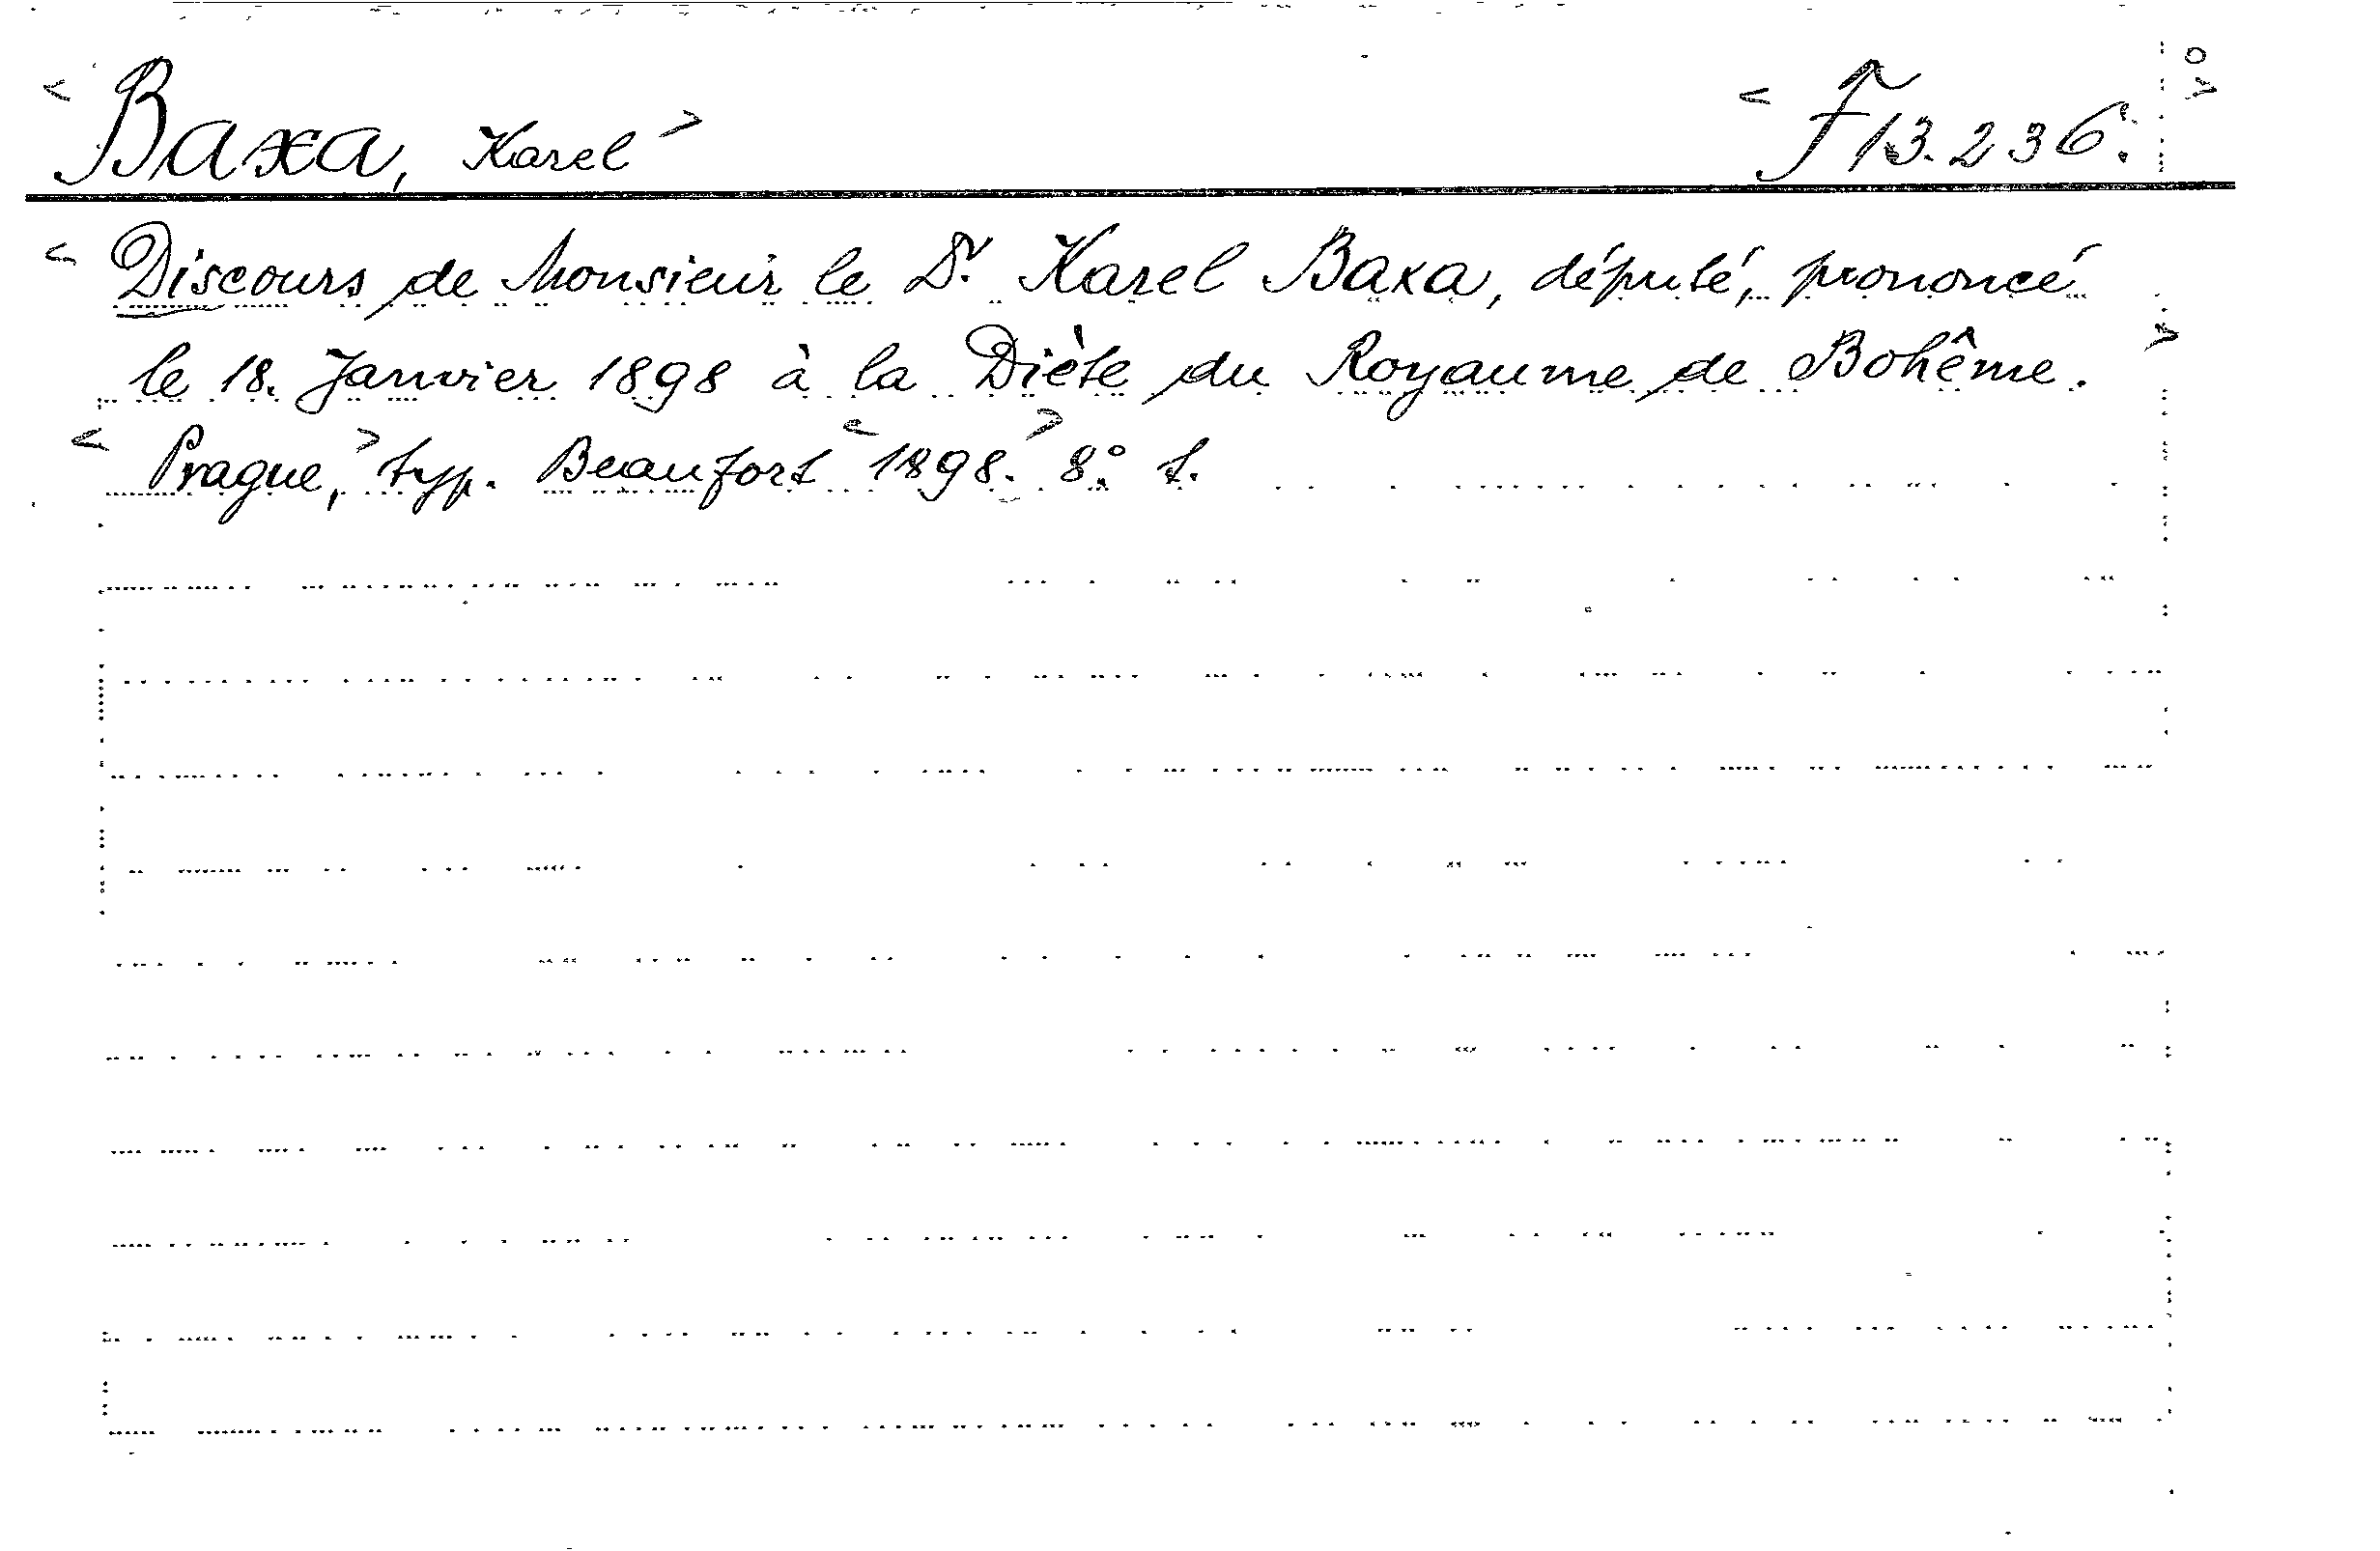 < Baxa, Karel > < F 13.236. >
< Discours de Monsieur le Dr. Karel Baxa, député, prononcé
le 18. Janvier 1898 à la Diète du Royaume de Bohême. >
< Prague, > typ. Beaufort < 1898. > 8.°